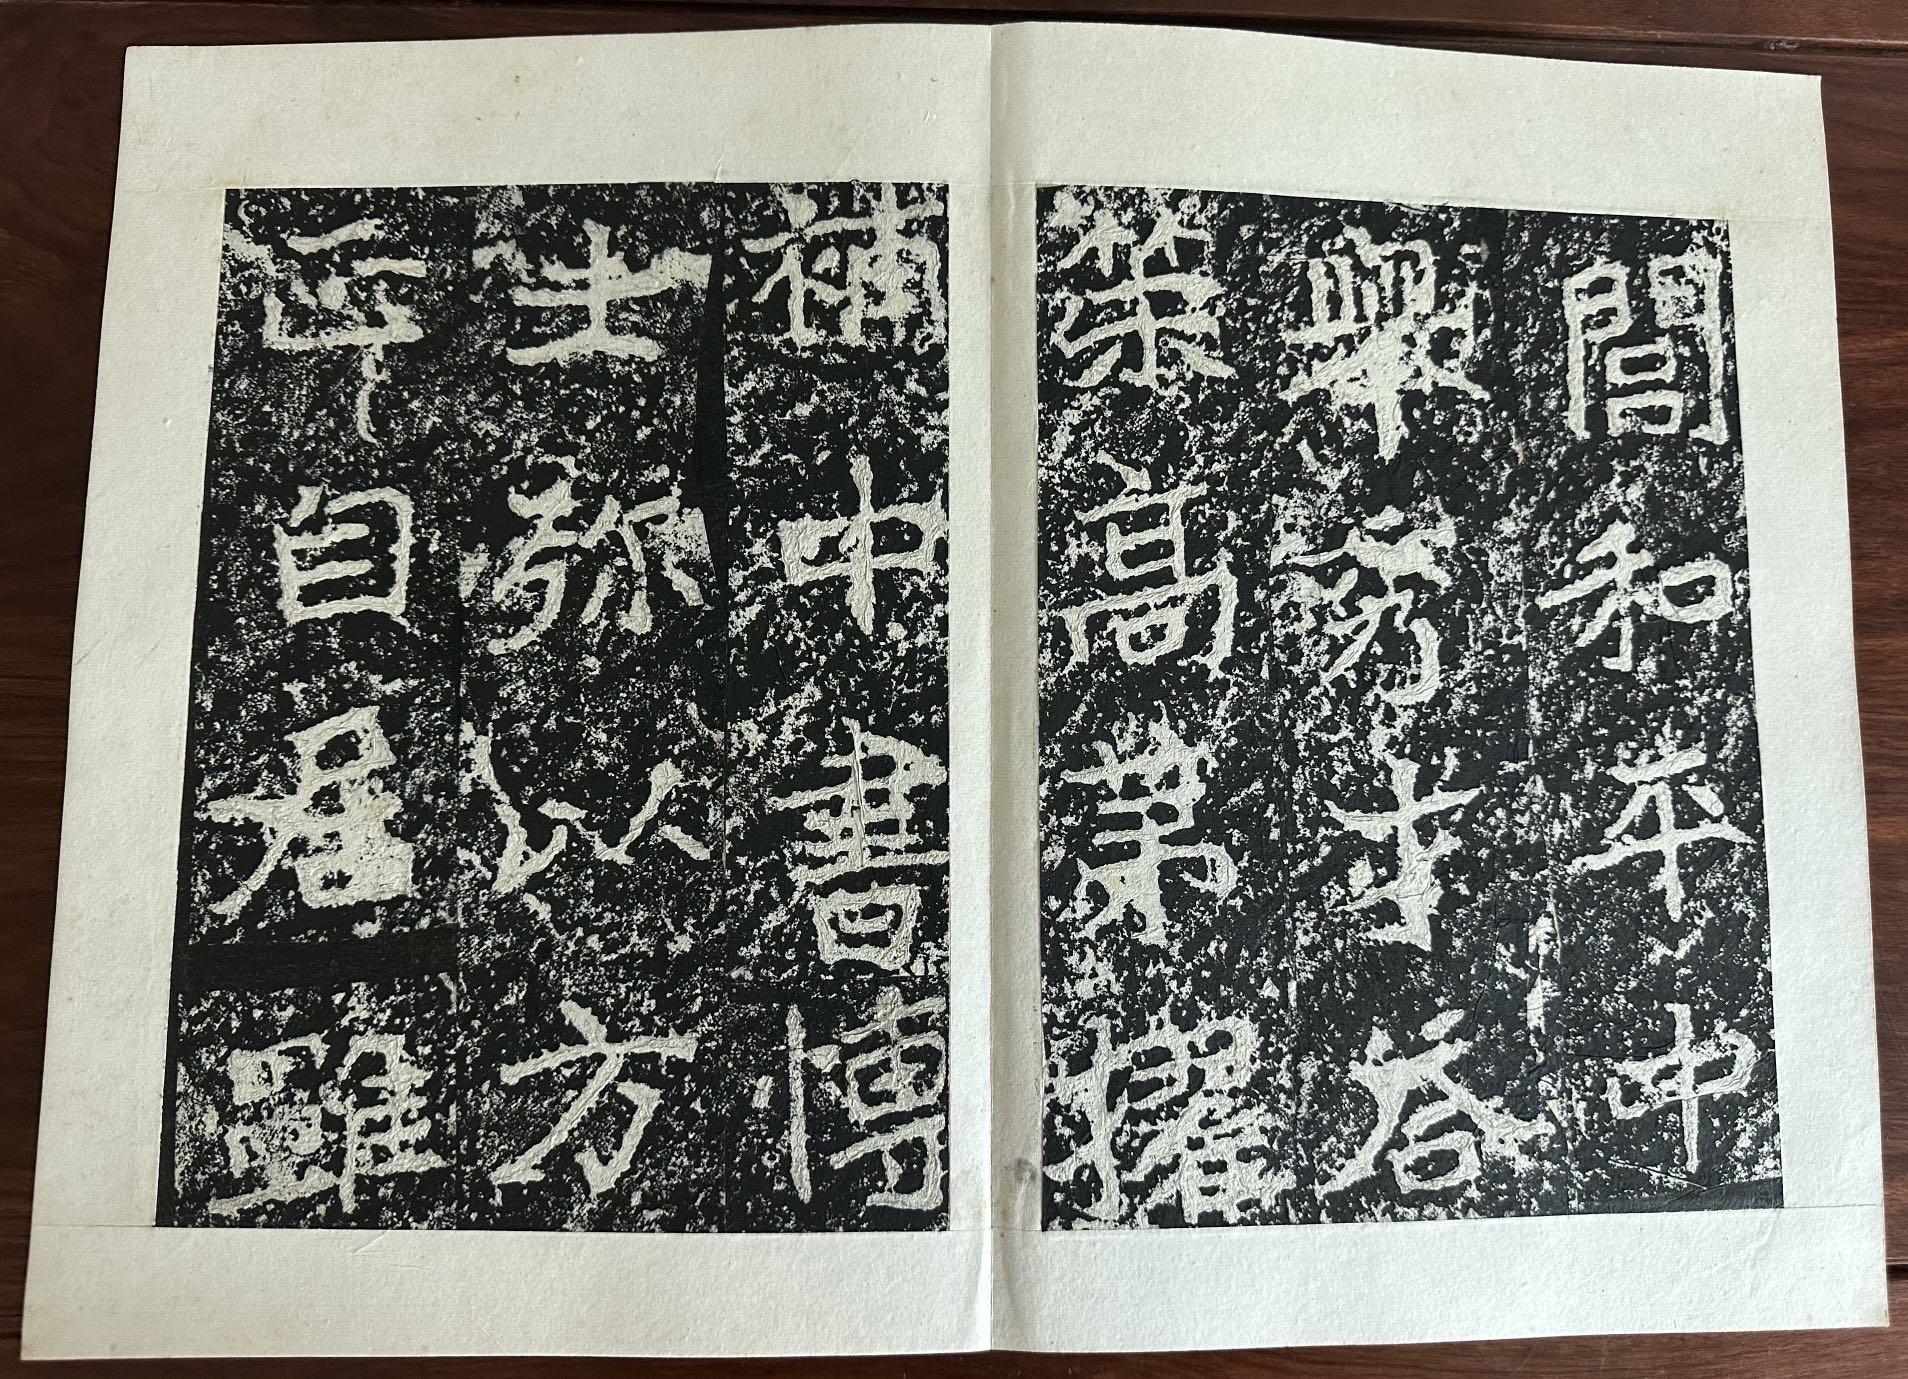 閭和平中
舉秀才答
策高第擢
補中書博
士弥以方
正自居雖